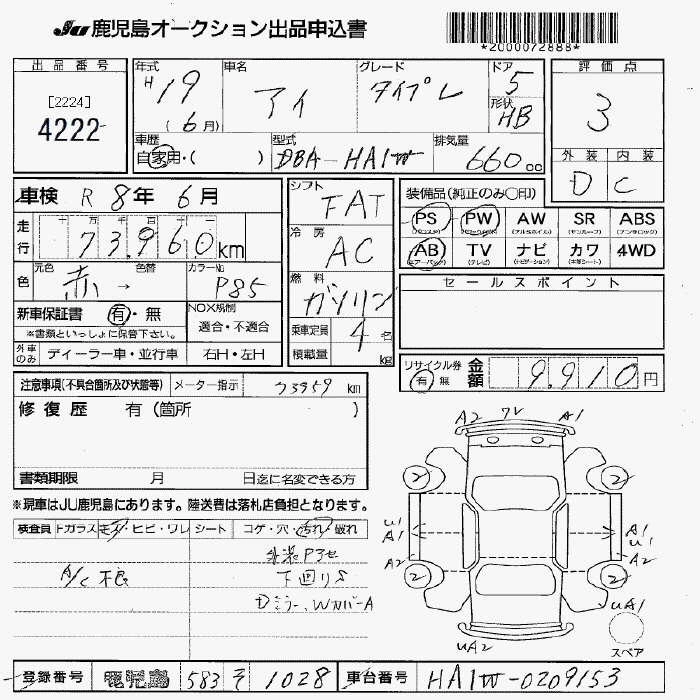 JU 鹿児島オークション出品申込書
*2000072888*
出品番号
[2224]
4222
年式 H19 (6月)
車名 アイ
グレード タイプL
ドア 5
形状 HB
評価点
3
外装 内装
D C
車歴 自家用・( )
型式 DBA-HA1W
排気量 660 cc
車検 R 8年 6月
走行 十 万 千 百 十
73,960 km
元色 色替 カラーNo
色 赤 → P85
新車保証書 有・無
※書類といっしょに保管下さい。
NOX規制
適合・不適合
外車のみ ディーラー車・並行車 右H・左H
シフト FAT
冷房 AC
燃料 ガソリン
乗車定員 4 名
積載量 kg
装備品(純正のみ○印)
PS PW AW SR ABS
(パワステ) (パワーウィンド) (アルミホイル) (サンルーフ) (アンチロック)
AB TV ナビ カワ 4WD
(エアーバック) (テレビ) (ナビゲーション) (本革シート)
セールスポイント
リサイクル券
有 無
金額 9,910円
注意事項(不具合箇所及び状態等) メーター指示 73959 km
修復歴 有(箇所 )
書類期限 月 日迄に名変できる方
※現車はJU鹿児島にあります。陸送費は落札店負担となります。
検査員 Fガラス キズ・ヒビ・ワレ シート コゲ・穴・汚れ・破れ
外装Pアセ
A/C不良 下回りS
Dミラー、WカバーA
A2 ワレ A1
2 2
U1 A1 A1 U1
A2 A2
2 2
UA1
UA2
スペア
登録番号 鹿児島 583 そ 1028
車台番号 HA1W-0209153